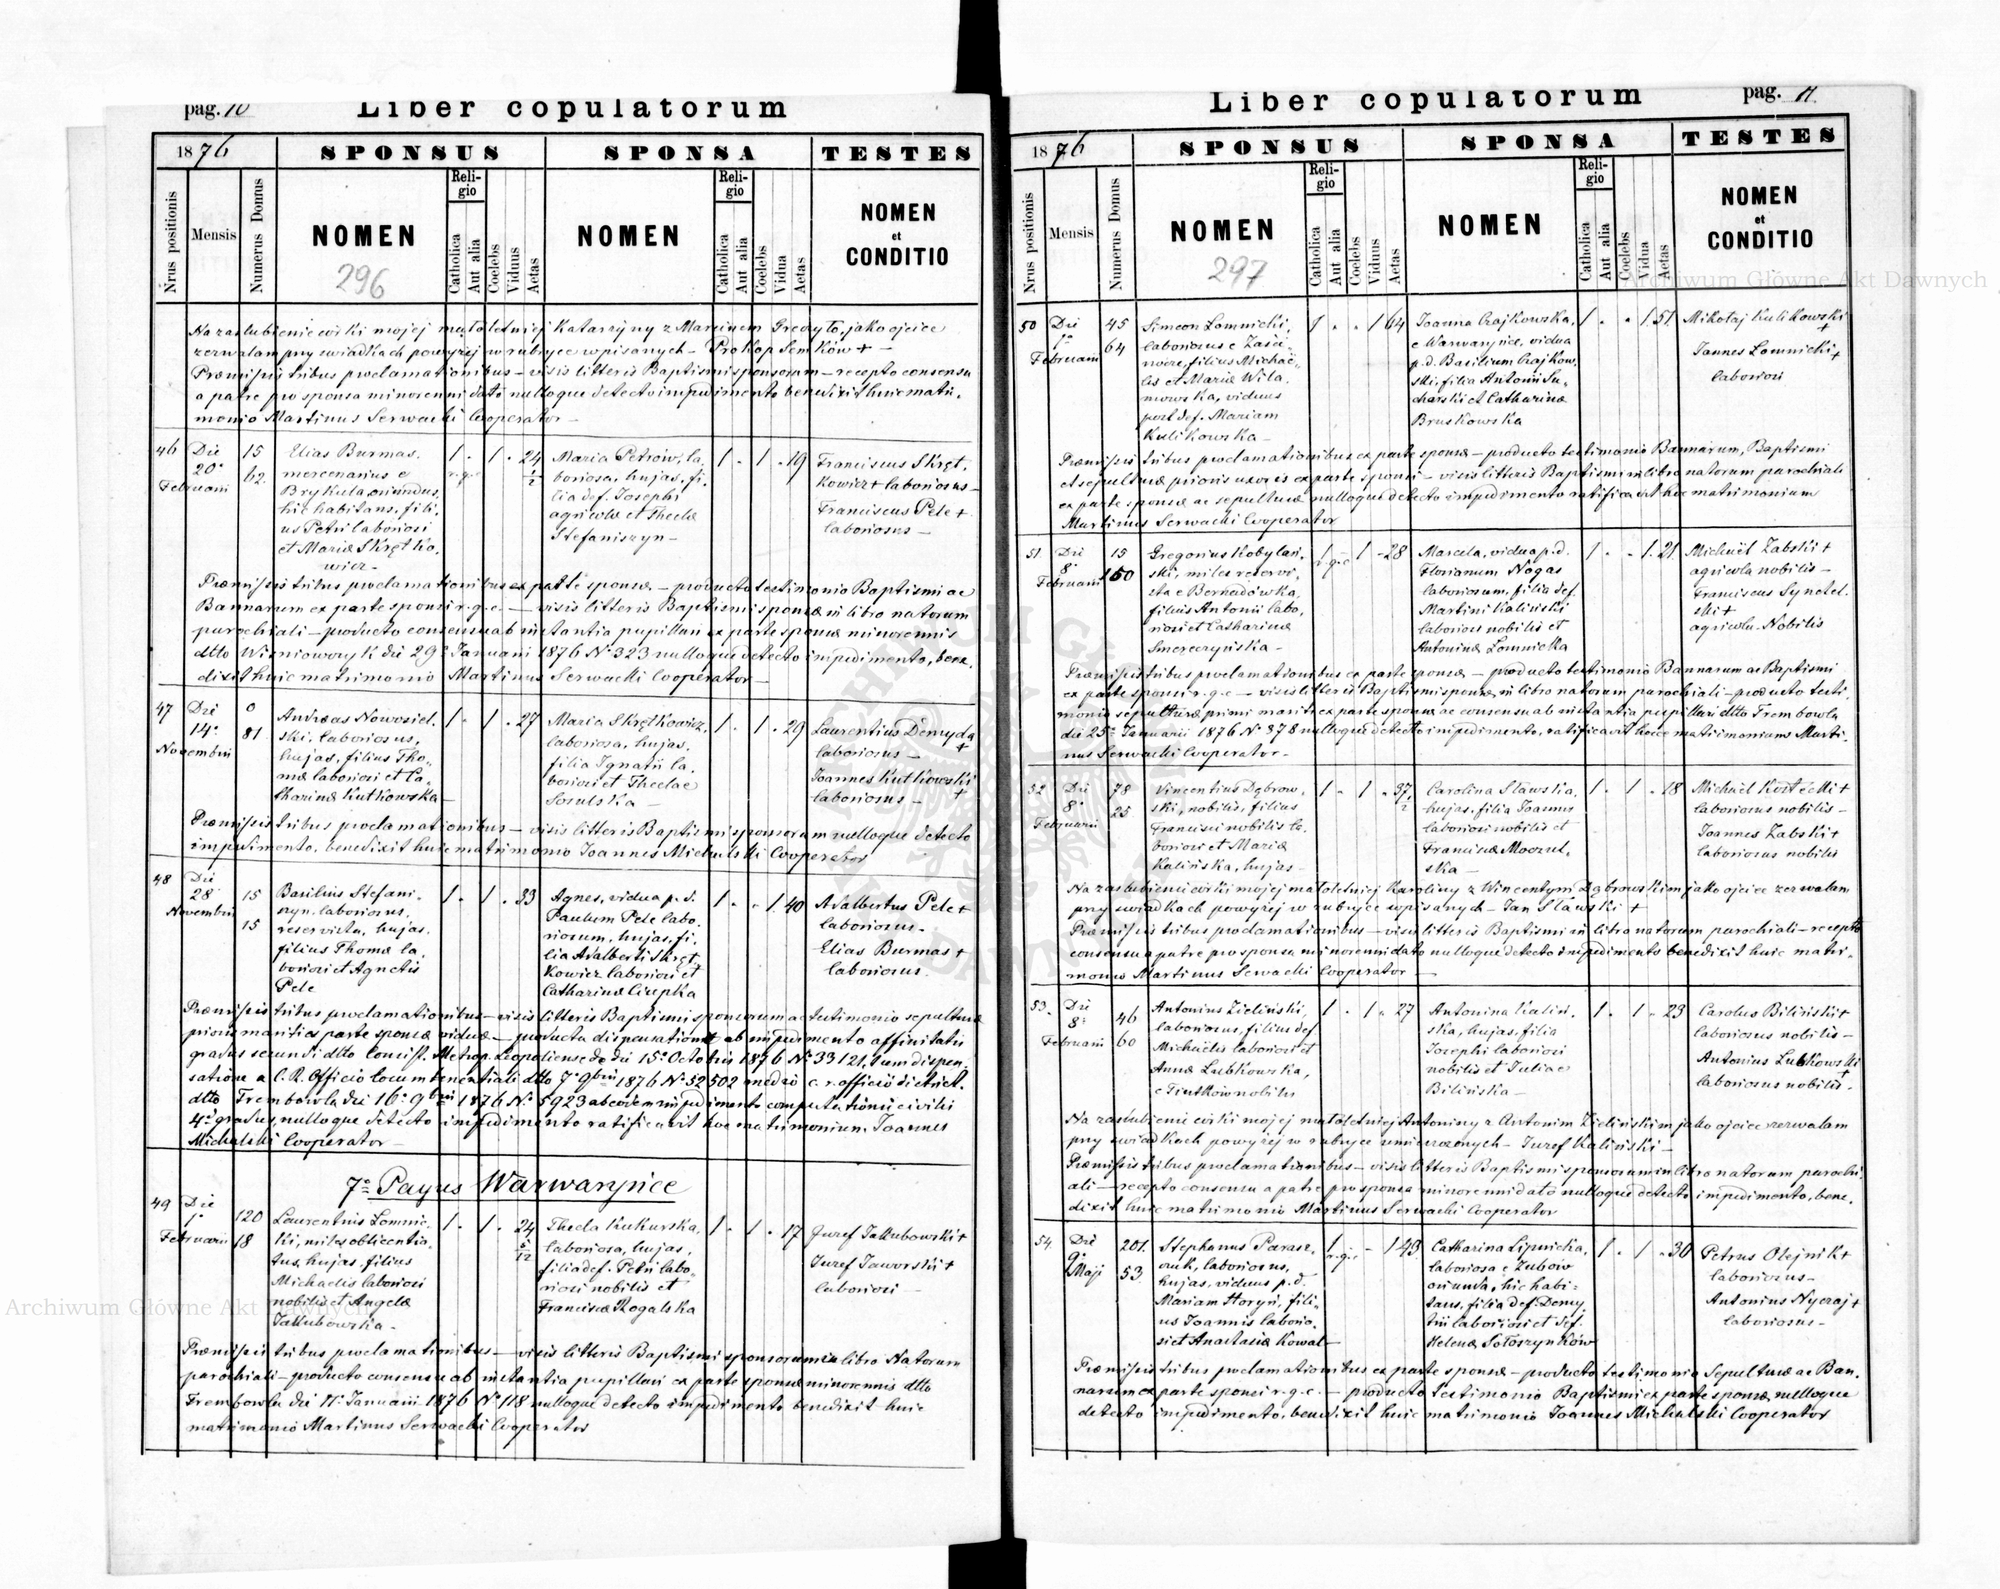 pag. 10
Liber copulatorum
1876
SPONSUS
SPONSA
TESTES
Nrus positionis
Mensis
Numerus Domus
NOMEN
296
Religio
Catholica
Aut alia
Coelebs
Viduus
Aetas
NOMEN
Religio
Catholica
Aut alia
Coelebs
Vidua
Aetas
NOMEN
et
CONDITIO
Na zaślubienie córki mojej małoletniej Katarzyny z Marcinem jako ojciec
zezwalam przy świadkach powyżej w rubryce wpisanych – Prokop Semków +
Præmissis tribus proclamationibus – visis litteris Baptismi sponsorum – recepto consensu
a patre pro sponsa minorenni dato nulloque detecto impedimento benedixit huic matri-
monio Martinus Serwacki Cooperator –
46
Die
20a
Februarii
15
62
Elias Burmas,
mercenarius e
Brykula oriundus,
hic habitans, fili-
us Petri laboriosi
et Mariæ Skrętko-
wicz –
1 r.g.c.
1
24 1/2
Maria Petrów, la-
boriosa, hujas, fi-
lia def. Josephi
agricolæ et Theclæ
Stefaniszyn –
1
1
19
Franciscus Skręt-
kowicz + laboriosus –
Franciscus Pele +
laboriosus –
Præmissis tribus proclamationibus ex parte sponsæ – producto testimonio Baptismi ac
Bannarum ex parte sponsi r.g.c. – visis litteris Baptismi sponsæ in libro natorum
parochiali – producto consensu ab instantia pupillari ex parte sponsæ minorennis
dtto Wiśniowczyk dii 29a Januarii 1876 No 323 nulloque detecto impedimento, bene-
dixit huic matrimonio Martinus Serwacki Cooperator –
47
Die
14a
Novembris
0
81
Andreas Nowosiel-
ski, laboriosus,
hujas, filius Tho-
mæ laboriosi et Ca-
tharinæ Kutkowska –
1
1
27
Maria Skrętkowicz,
laboriosa, hujas,
filia Ignatii la-
boriosi et Theclae
Sosulska –
1
1
29
Laurentius Demyda +
laboriosus –
Joannes Kutkowski +
laboriosus –
Præmissis tribus proclamationibus – visis litteris Baptismi sponsorum nulloque detecto
impedimento, benedixit huic matrimonio Joannes Michalski Cooperator
48
Die
28
Novembris
15
15
Basilius Stefani-
szyn, laboriosus,
reservista, hujas,
filius Thomæ la-
boriosi et Agnetis
Pele
1
1
33
Agnes, vidua p.d.
Paulum Pele labo-
riosum, hujas, fi-
lia Adalberti Skręt-
kowicz laboriosi et
Catharinæ Ciupka
1
1
40
Adalbertus Pele +
laboriosus –
Elias Burmas +
laboriosus.
Præmissis tribus proclamationibus – visis litteris Baptismi sponsorum ac testimonio sepulturæ
prioris mariti ex parte sponsæ viduæ – producta dispensatione ab impedimento affinitatis
gradus secundi dtto Consist. Metrop. Leopoliense de die 15a Octobris 1876 No 33121, tum dispen-
satione a C.R. Officio locumtenentiali dtto 7a 9bris 1876 No 52502 medio c.r. officii district.
dtto Trembowla dii 16a 9bris 1876 No 5923 ab eodem impedimento computationis civilis
4ti gradus, nulloque detecto impedimento ratificavit hoc matrimonium Joannes
Michalski Cooperator –
7o Pagus Warwaryńce
49
Die
1a
Februarii
120
18
Laurentius Łomnic-
ki, miles oblicentia-
tus, hujas, filius
Michaelis laboriosi
nobilis et Angelæ
Jakubowska –
1
1
24 5/12
Thecla Kukurska,
laboriosa, hujas,
filia def. Petri labo-
riosi nobilis et
Franciscæ Rogalska
1
1
17
Juzef Jakubowski +
Juzef Jaworski +
laboriosi –
Præmissis tribus proclamationibus – visis litteris Baptismi sponsorum in libro Natorum
parochiali – producto consensu ab instantia pupillari ex parte sponsæ minorennis dtto
Trembowla dii 11a Januarii 1876 No 118 nulloque detecto impedimento benedixit huic
matrimonio Martinus Serwacki Cooperator
pag. 11
Liber copulatorum
1876
SPONSUS
SPONSA
TESTES
Nrus positionis
Mensis
Numerus Domus
NOMEN
297
Religio
Catholica
Aut alia
Coelebs
Viduus
Aetas
NOMEN
Religio
Catholica
Aut alia
Coelebs
Vidua
Aetas
NOMEN
et
CONDITIO
50
Die
1a
Februarii
45
64
Simeon Łomnicki,
laboriosus e Zaści-
nocze, filius Michaë-
lis et Mariæ Wila-
mowska, viduus
post def. Mariam
Kulikowska –
1
1
64
Joanna Czajkowska,
e Warwaryńce, vidua
p.d. Basilium Czajkow-
ski, filia Antonii Su-
charski et Catharinæ
Bruskowska
1
1
51
Mikołaj Kulikowski +
Joannes Łomnicki +
laboriosi
Præmissis tribus proclamationibus ex parte sponsæ – producto testimonio Bannarum, Baptismi
et sepulturæ prioris uxoris ex parte sponsi – visis litteris Baptismi in libro natorum parochiali
ex parte sponsæ ac sepulturæ nulloque detecto impedimento ratificavit hoc matrimonium
Martinus Serwacki Cooperator
51
Die
8a
Februarii
15
150
Gregorius Kobylań-
ski, miles reservi-
sta e Bernadówka,
filius Antonii labo-
riosi et Catharinæ
Smereczyńska –
1 r.g.c
1
28
Marcela, vidua p.d.
Florianum Nogas
laboriosum, filia def.
Martini Kaliński
laboriosi nobilis et
Antoninæ Łomnicka
1
1
21
Michaël Zabski +
agricola nobilis –
Franciscus Synetel-
ski +
agricola Nobilis
Præmissis tribus proclamationibus ex parte sponsæ – producto testimonio Bannarum ac Baptismi
ex parte sponsi r.g.c – visis litteris Baptismi sponsæ, in libro natorum parochiali – producto testi-
monio sepulturæ primi mariti ex parte sponsæ ac consensu ab instantia pupillari dtto Trembowla
dii 25a Januarii 1876 No 378 nulloque detecto impedimento, ratificavit hocce matrimonium Marti-
nus Serwacki Cooperator –
52
Die
8a
Februarii
78
25
Vincentius Dąbrow-
ski, nobilis, filius
Francisci nobilis la-
boriosi et Mariæ
Kalińska, hujas –
1
1
37 1/2
Carolina Sławska,
hujas, filia Joannis
laboriosi nobilis et
Franciscæ Moczul-
ska –
1
1
18
Michaël Kostecki +
laboriosus nobilis –
Joannes Zabski +
laboriosus nobilis
Na zaślubienie córki mojej małoletniej Karoliny z Wincentym Dąbrowskim jako ojciec zezwalam
przy świadkach powyżej w rubryce wpisanych – Jan Sławski +
Præmissis tribus proclamationibus – visis litteris Baptismi in libro natorum parochiali – recepto
consensu a patre pro sponsa minorenni dato nulloque detecto impedimento benedixit huic matri-
monio Martinus Serwacki Cooperator –
53.
Die
8a
Februarii
46
60
Antonius Zieliński,
laboriosus, filius def
Michaëlis laboriosi et
Annæ Lubkowska,
e Tiutków nobilis
1
1
27
Antonina Kaliń-
ska, hujas, filia
Josephi laboriosi
nobilis et Juliae
Bilińska –
1
1
23
Carolus Biliński +
laboriosus nobilis –
Antonius Lubkowski +
laboriosus nobilis –
Na zaślubienie córki mojej małoletniej Antoniny z Antonim Zielińskim jako ojciec zezwalam
przy świadkach powyżej w rubryce umieszczonych – Juzef Kaliński –
Præmissis tribus proclamationibus – visis litteris Baptismi sponsorum in libro natorum parochi-
ali – recepto consensu a patre pro sponsa minorenni dato nulloque detecto impedimento, bene-
dixit huic matrimonio Martinus Serwacki Cooperator
54
Die
9a
Maji
201.
53
Stephanus Parasz-
czuk, laboriosus,
hujas, viduus p.d.
Mariam Horyń, fili-
us Joannis laborio-
si et Anastasiæ Kowal –
1 r.g.c
1
49
Catharina Lipnicka,
laboriosa e Zubów
oriunda, hic habi-
tans, filia def. Demy-
trii laboriosi et def.
Helenæ Sołoszynków
1
1
30
Petrus Olejnik +
laboriosus –
Antonius Nyczaj +
laboriosus –
Præmissis tribus proclamationibus ex parte sponsæ – producto testimonio Sepulturæ ac Ban-
narum ex parte sponsi r.g.c. – producto testimonio Baptismi ex parte sponsæ, nulloque
detecto impedimento, benedixit huic matrimonio Joannes Michalski Cooperator
Archiwum Główne Akt Dawnych
Archiwum Główne Akt Dawnych